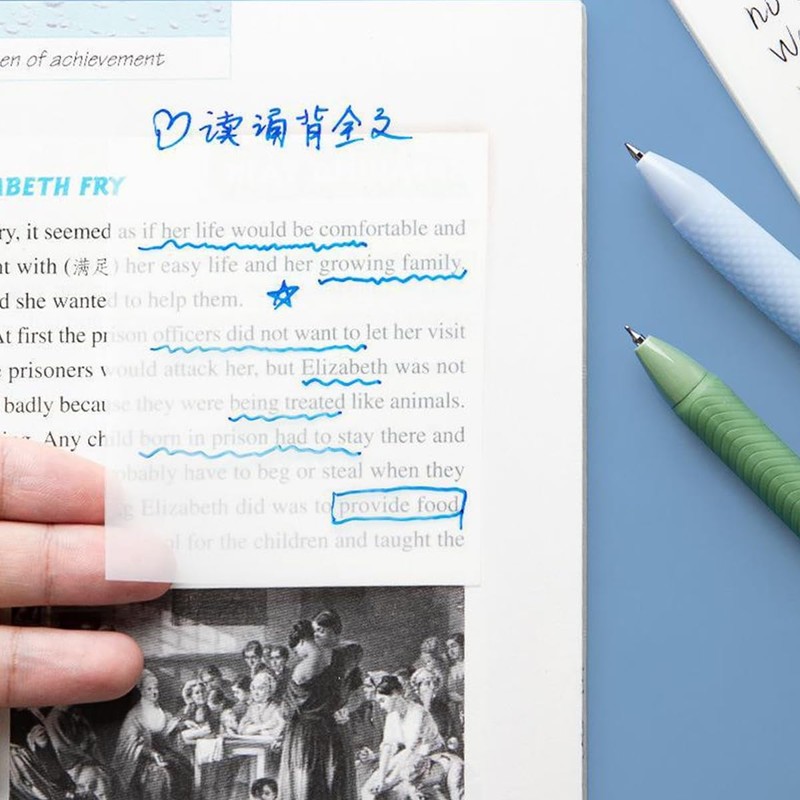 en of achievement
读诵背全文
ABETH FRY
ry, it seemed as if her life would be comfortable and
nt with (满足) her easy life and her growing family,
d she wanted to help them.
At first the prison officers did not want to let her visit
e prisoners would attack her, but Elizabeth was not
badly because they were being treated like animals.
ing. Any child born in prison had to stay there and
obably have to beg or steal when they
g Elizabeth did was to provide food,
ol for the children and taught the